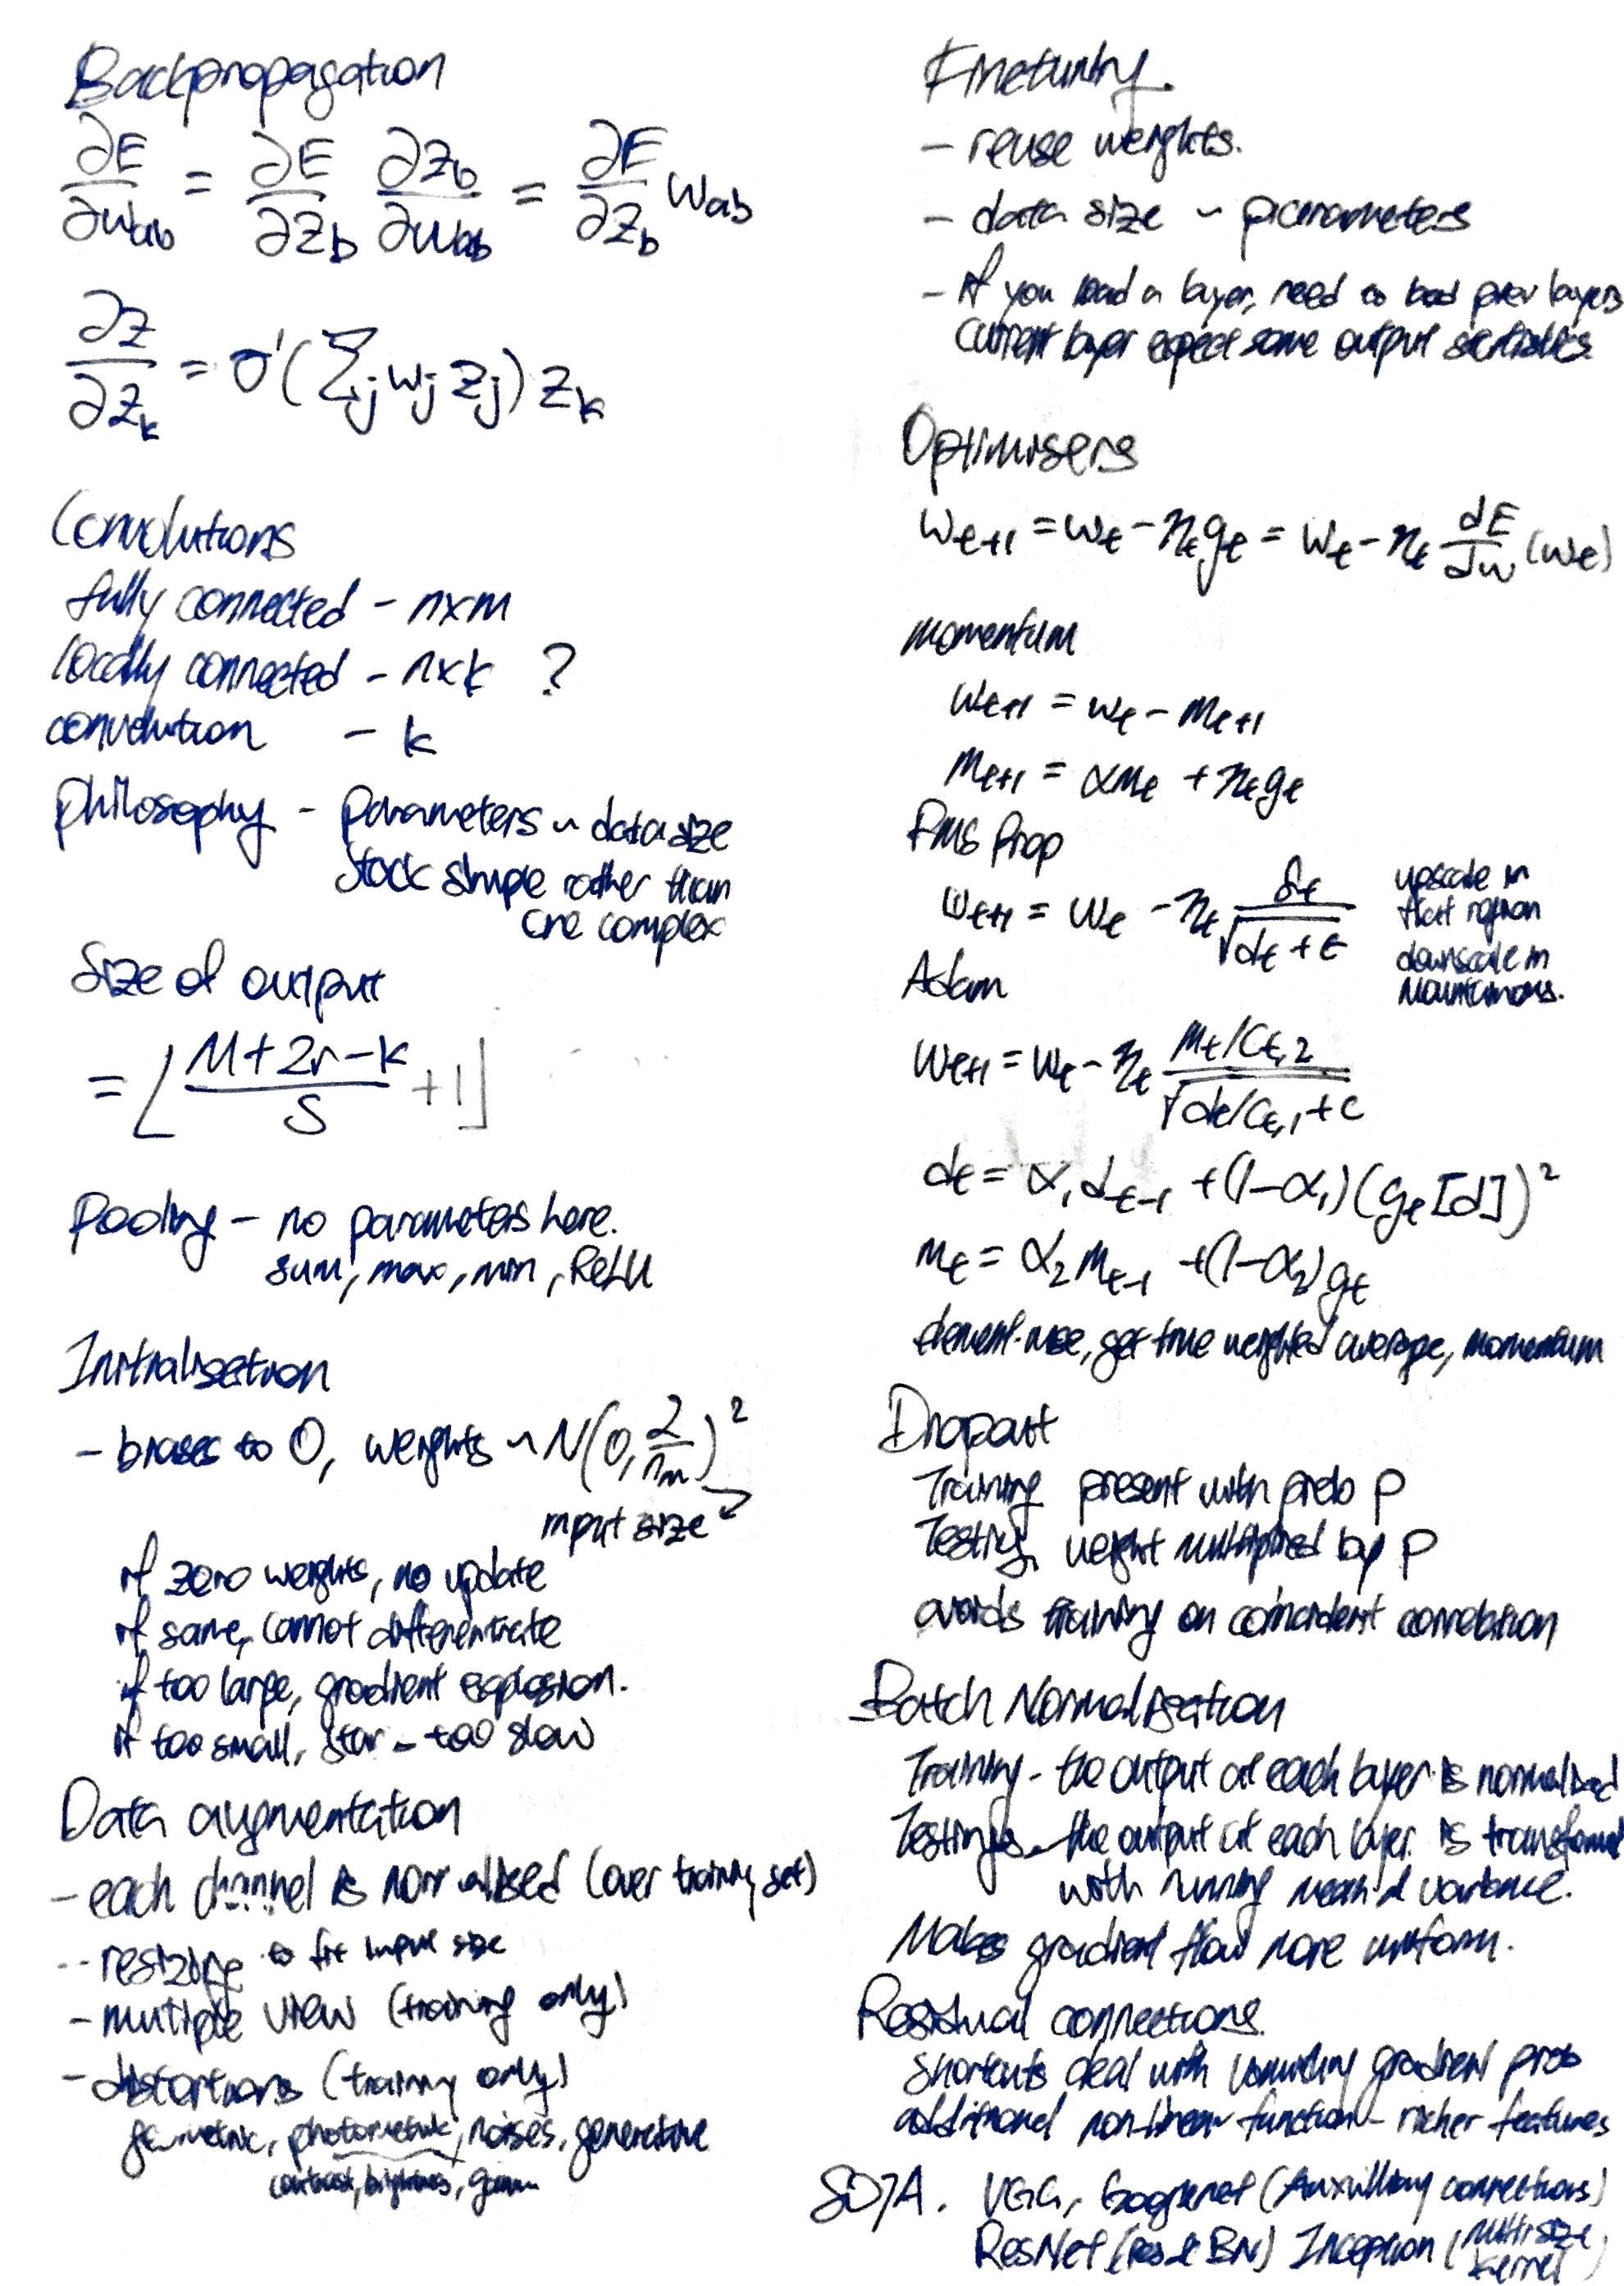 Backpropagation
∂E/∂w_ab = ∂E/∂z_b ∂z_b/∂w_ab = ∂E/∂z_b w_ab
∂z/∂z_k = σ'(Σ_j w_j z_j) z_k
Convolutions
fully connected - n×m
locally connected - n×k ?
convolution - k
philosophy - parameters ~ data size
stack simple rather than
one complex
Size of output
= ⌊(M+2r-k)/S +1⌋
Pooling - no parameters here.
sum, max, min, ReLU
Initialisation
- biases to 0, weights ~ N(0, 2/n_in)²
input size
if zero weights, no update
if same, cannot differentiate
if too large, gradient explosion.
if too small, - too slow
Data augmentation
- each channel is normalised (over training set)
- resizing to fit input size
- multiple view (training only)
- distortions (training only)
geometric, photometric, noises, generative
contrast, brightness, gamma
Finetuning.
- reuse weights.
- data size ~ parameters
- if you load a layer, need to load prev layers
current layer expect some output statistics.
Optimisers
w_t+1 = w_t - η_t g_t = w_t - η_t dE/dw (w_t)
momentum
w_t+1 = w_t - m_t+1
m_t+1 = αm_t + η_t g_t
RMS Prop
w_t+1 = w_t - η_t g_t/√(d_t + ε)
upscale in
flat region
downscale in
mountainous.
Adam
w_t+1 = w_t - η_t (m_t/C_t,2)/√(d_t/C_t,1 + ε)
d_t = α_1 d_t-1 + (1-α_1)(g_t[d])²
m_t = α_2 m_t-1 + (1-α_2) g_t
element-wise, get true weighted average, momentum
Dropout
Training present with prob p
Testing, weight multiplied by p
avoids training on coincident correlation
Batch Normalisation
Training - the output at each layer is normalised
Testing - the output at each layer is transformed
with running mean & variance.
Makes gradient flow more uniform.
Residual connections.
shortcuts deal with vanishing gradient prob
additional non-linear function - richer features
SOTA. VGG, Googlenet (Auxilliary connections)
ResNet (res & BN) Inception (multi size
kernel)